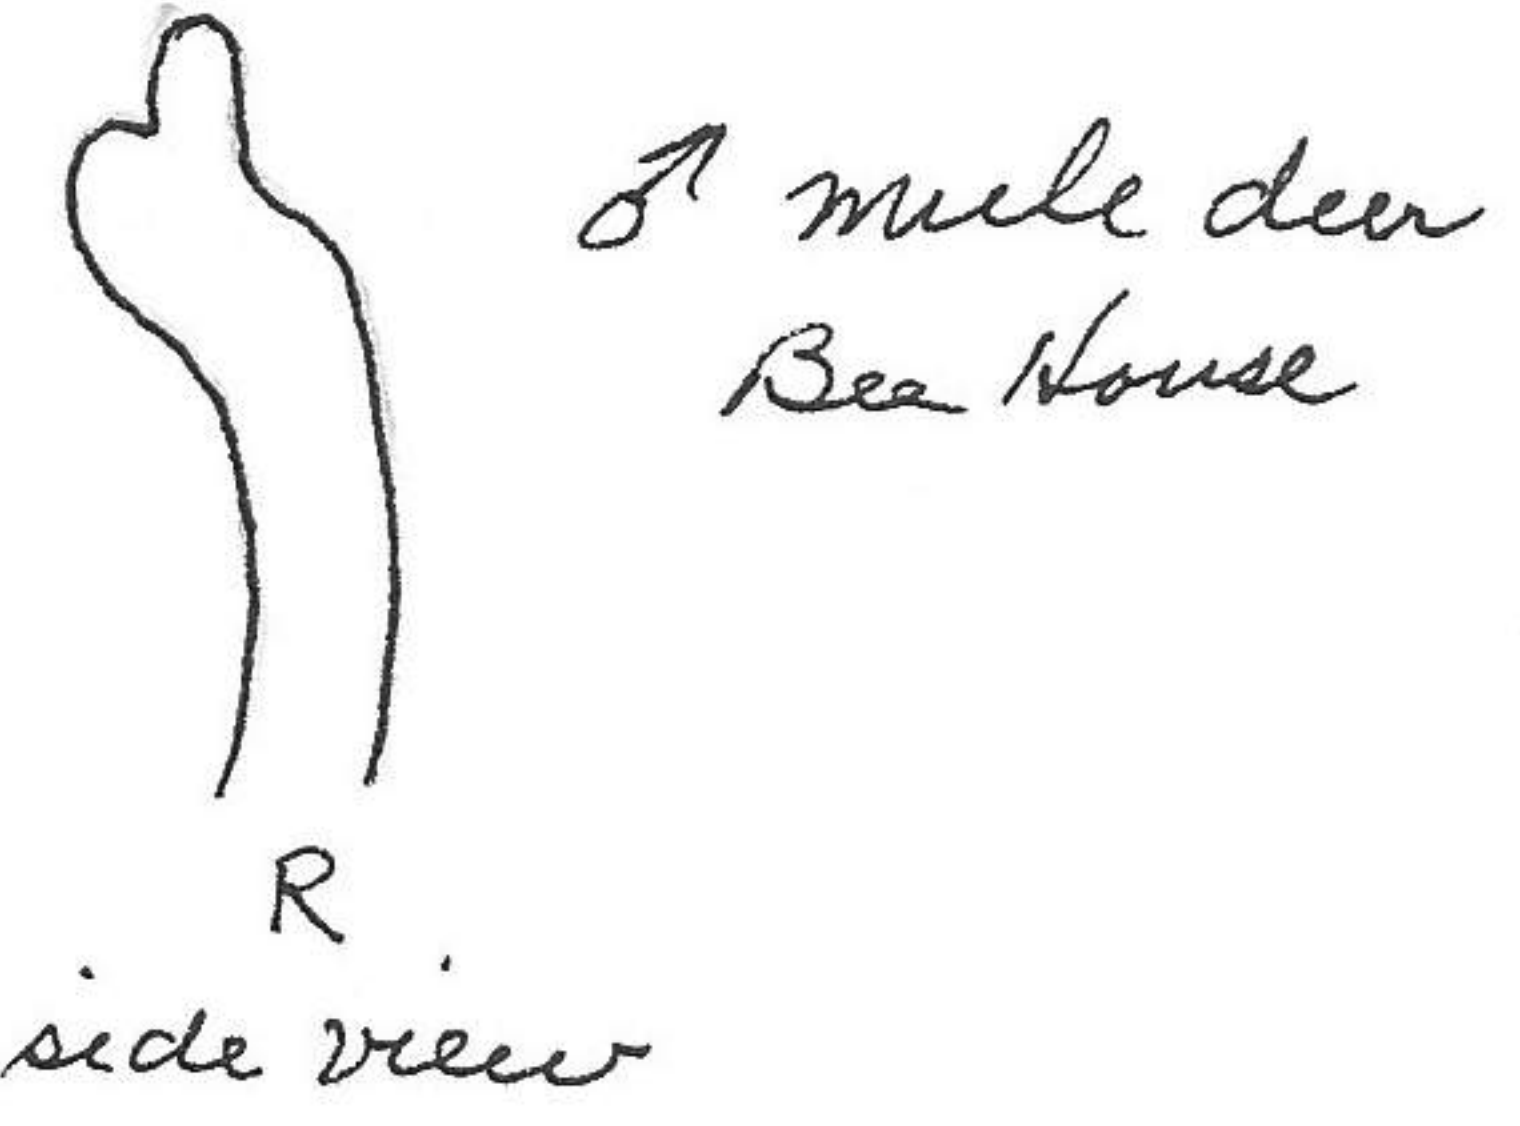 ♂ mule deer
Bee House
R
side view